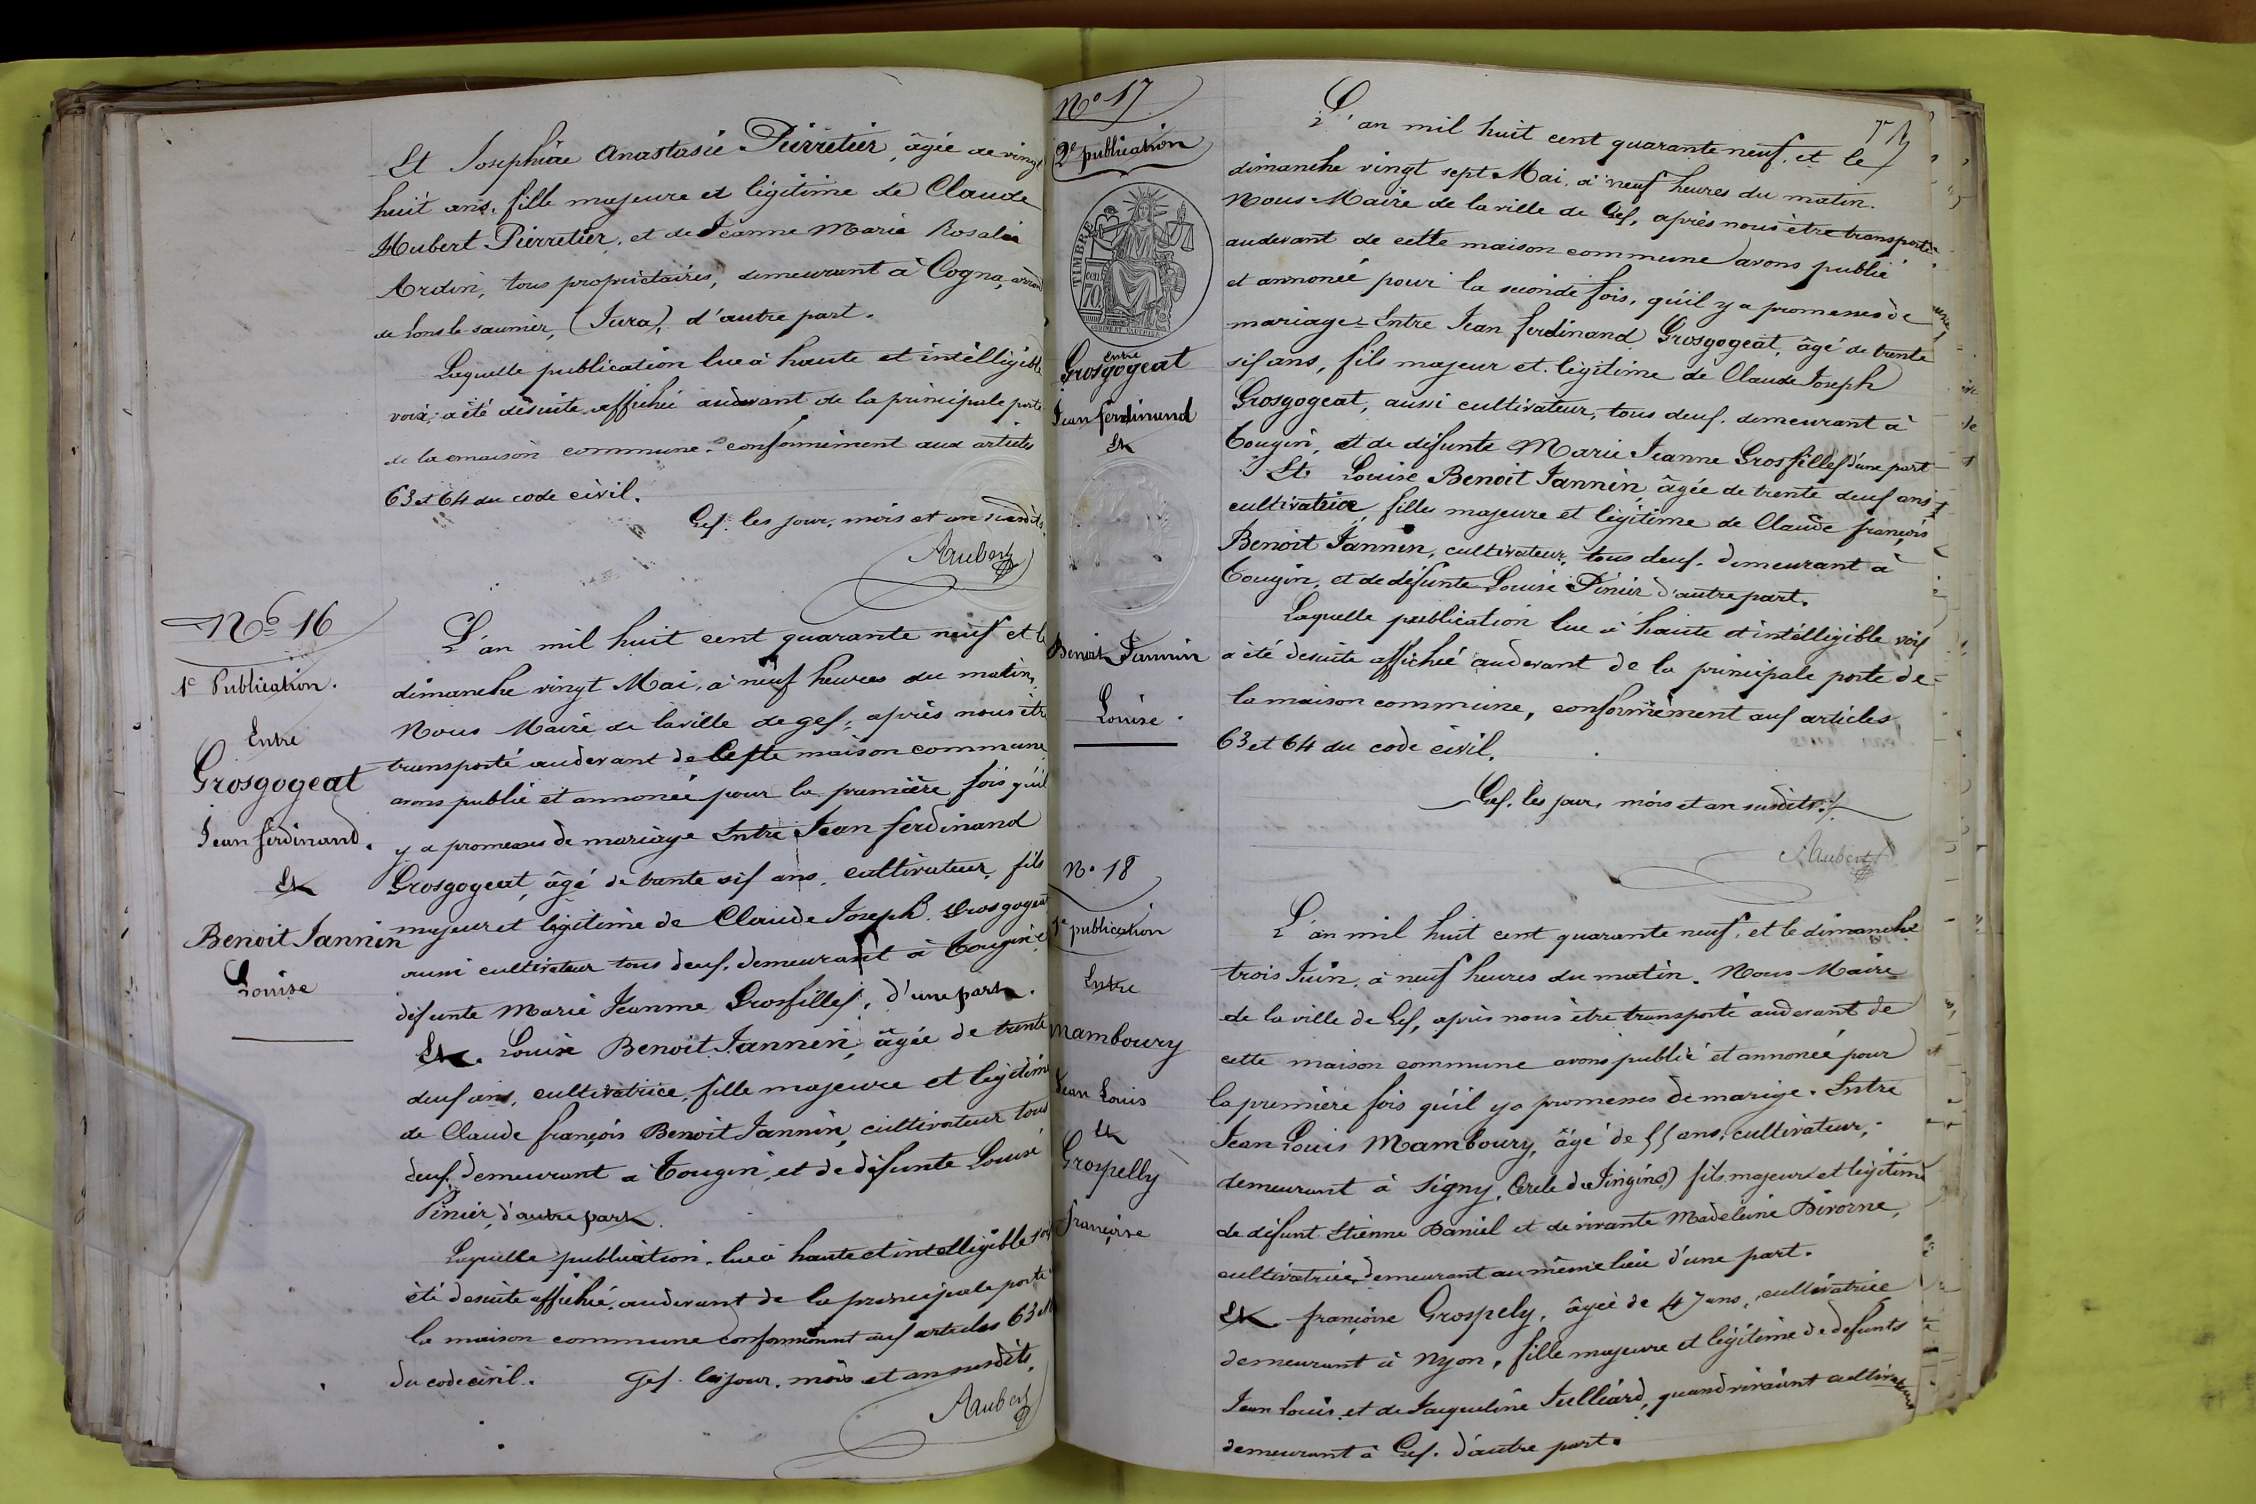 Et Josephine Anastasie Pierretier, âgée de vingt
huit ans, fille majeure et légitime de Claude
Hubert Pierretier, et de Jeanne Marie Rosalie
Ardin, tous propriétaires, demeurant à Cogna, arrond
de Lons le saunier, (Jura), d'autre part.
Laquelle publication lue à haute et intelligible
voix, a été désuite affichée audevant de la principale porte
de la maison commune conformément aux articles
63 et 64 du code civil.
Gex les jour, mois et an susdits.
Aubert
No 16
1e Publication.
Entre
Grosgogeat
Jean ferdinand.
Et
Benoit Jannin
Louise
L'an mil huit cent quarante neuf et le
dimanche vingt Mai, à neuf heures du matin,
Nous Maire de la ville de gex, après nous être
transporté audevant de Cette maison commune
avons publié et annoncé pour la première fois qu'il
y a promesses de mariage Entre Jean ferdinand
Grosgogeat, âgé de trente six ans, cultivateur, fils
majeur et légitime de Claude Joseph Grosgogeat
aussi cultivateur tous deux demeurant à Tougin, et
défunte Marie Jeanne Grosfillex, d'une part.
Et Louise Benoit Jannin, âgée de trente
deux ans, cultivatrice, fille majeure et légitime
de Claude françois Benoit Jannin, cultivateur tous
deux demeurant à Tougin, et de défunte Louise
Pinier, d'autre part.
Laquelle publication lue à haute et intelligible voix
été desuite affichée audevant de la principale porte
la maison commune conformément aux articles 63 et
du code civil. Gex les jour, mois et an susdits.
Aubert
No 17
2e publication
TIMBRE
70
Entre
Grosgogeat
Jean ferdinand
Et
Benoit Jannin
Louise.
L'an mil huit cent quarante neuf, et le
dimanche vingt sept Mai, à neuf heures du matin.
Nous Maire de la ville de Gex, après nous être transporté
audevant de cette maison commune avons publié
et annoncé pour la seconde fois, qu'il y a promesses de
mariage Entre Jean ferdinand Grosgogeat, âgé de trente
six ans, fils majeur et légitime de Claude Joseph
Grosgogeat, aussi cultivateur, tous deux demeurant à
Tougin, et de défunte Marie Jeanne Grosfillex d'une part
Et Louise Benoit Jannin, âgée de trente deux ans
cultivatrice, fille majeure et légitime de Claude françois
Benoit Jannin, cultivateur, tous deux demeurant à
Tougin, et de défunte Louise Pinier d'autre part.
Laquelle publication lue à haute et intelligible voix
a été desuite affichée audevant de la principale porte de
la maison commune, conformément aux articles
63 et 64 du code civil.
Gex, les jour, mois et an susdits.
Aubert
No 18
1e publication
Entre
Mamboury
Jean Louis
Et
Grospelly
françoise
L'an mil huit cent quarante neuf, et le dimanche
trois Juin, à neuf heures du matin. Nous Maire
de la ville de Gex, après nous être transporté audevant de
cette maison commune avons publié et annoncé pour
la première fois qu'il y a promesses de mariage. Entre
Jean Louis Mamboury, âgé de 55 ans, cultivateur,
demeurant à Signy, Cercle de Gingins) fils majeur et légitime
de défunt Etienne Daniel et de vivante Madeleine Divorne,
cultivatrice, demeurant au même lieu d'une part.
Et françoise Grospely, âgée de 47 ans, cultivatrice
demeurant à Nyon, fille majeure et légitime de defunts
Jean Louis et de Jaqueline Julliard, quand vivaient cultivateurs
demeurant à Gex, d'autre part.